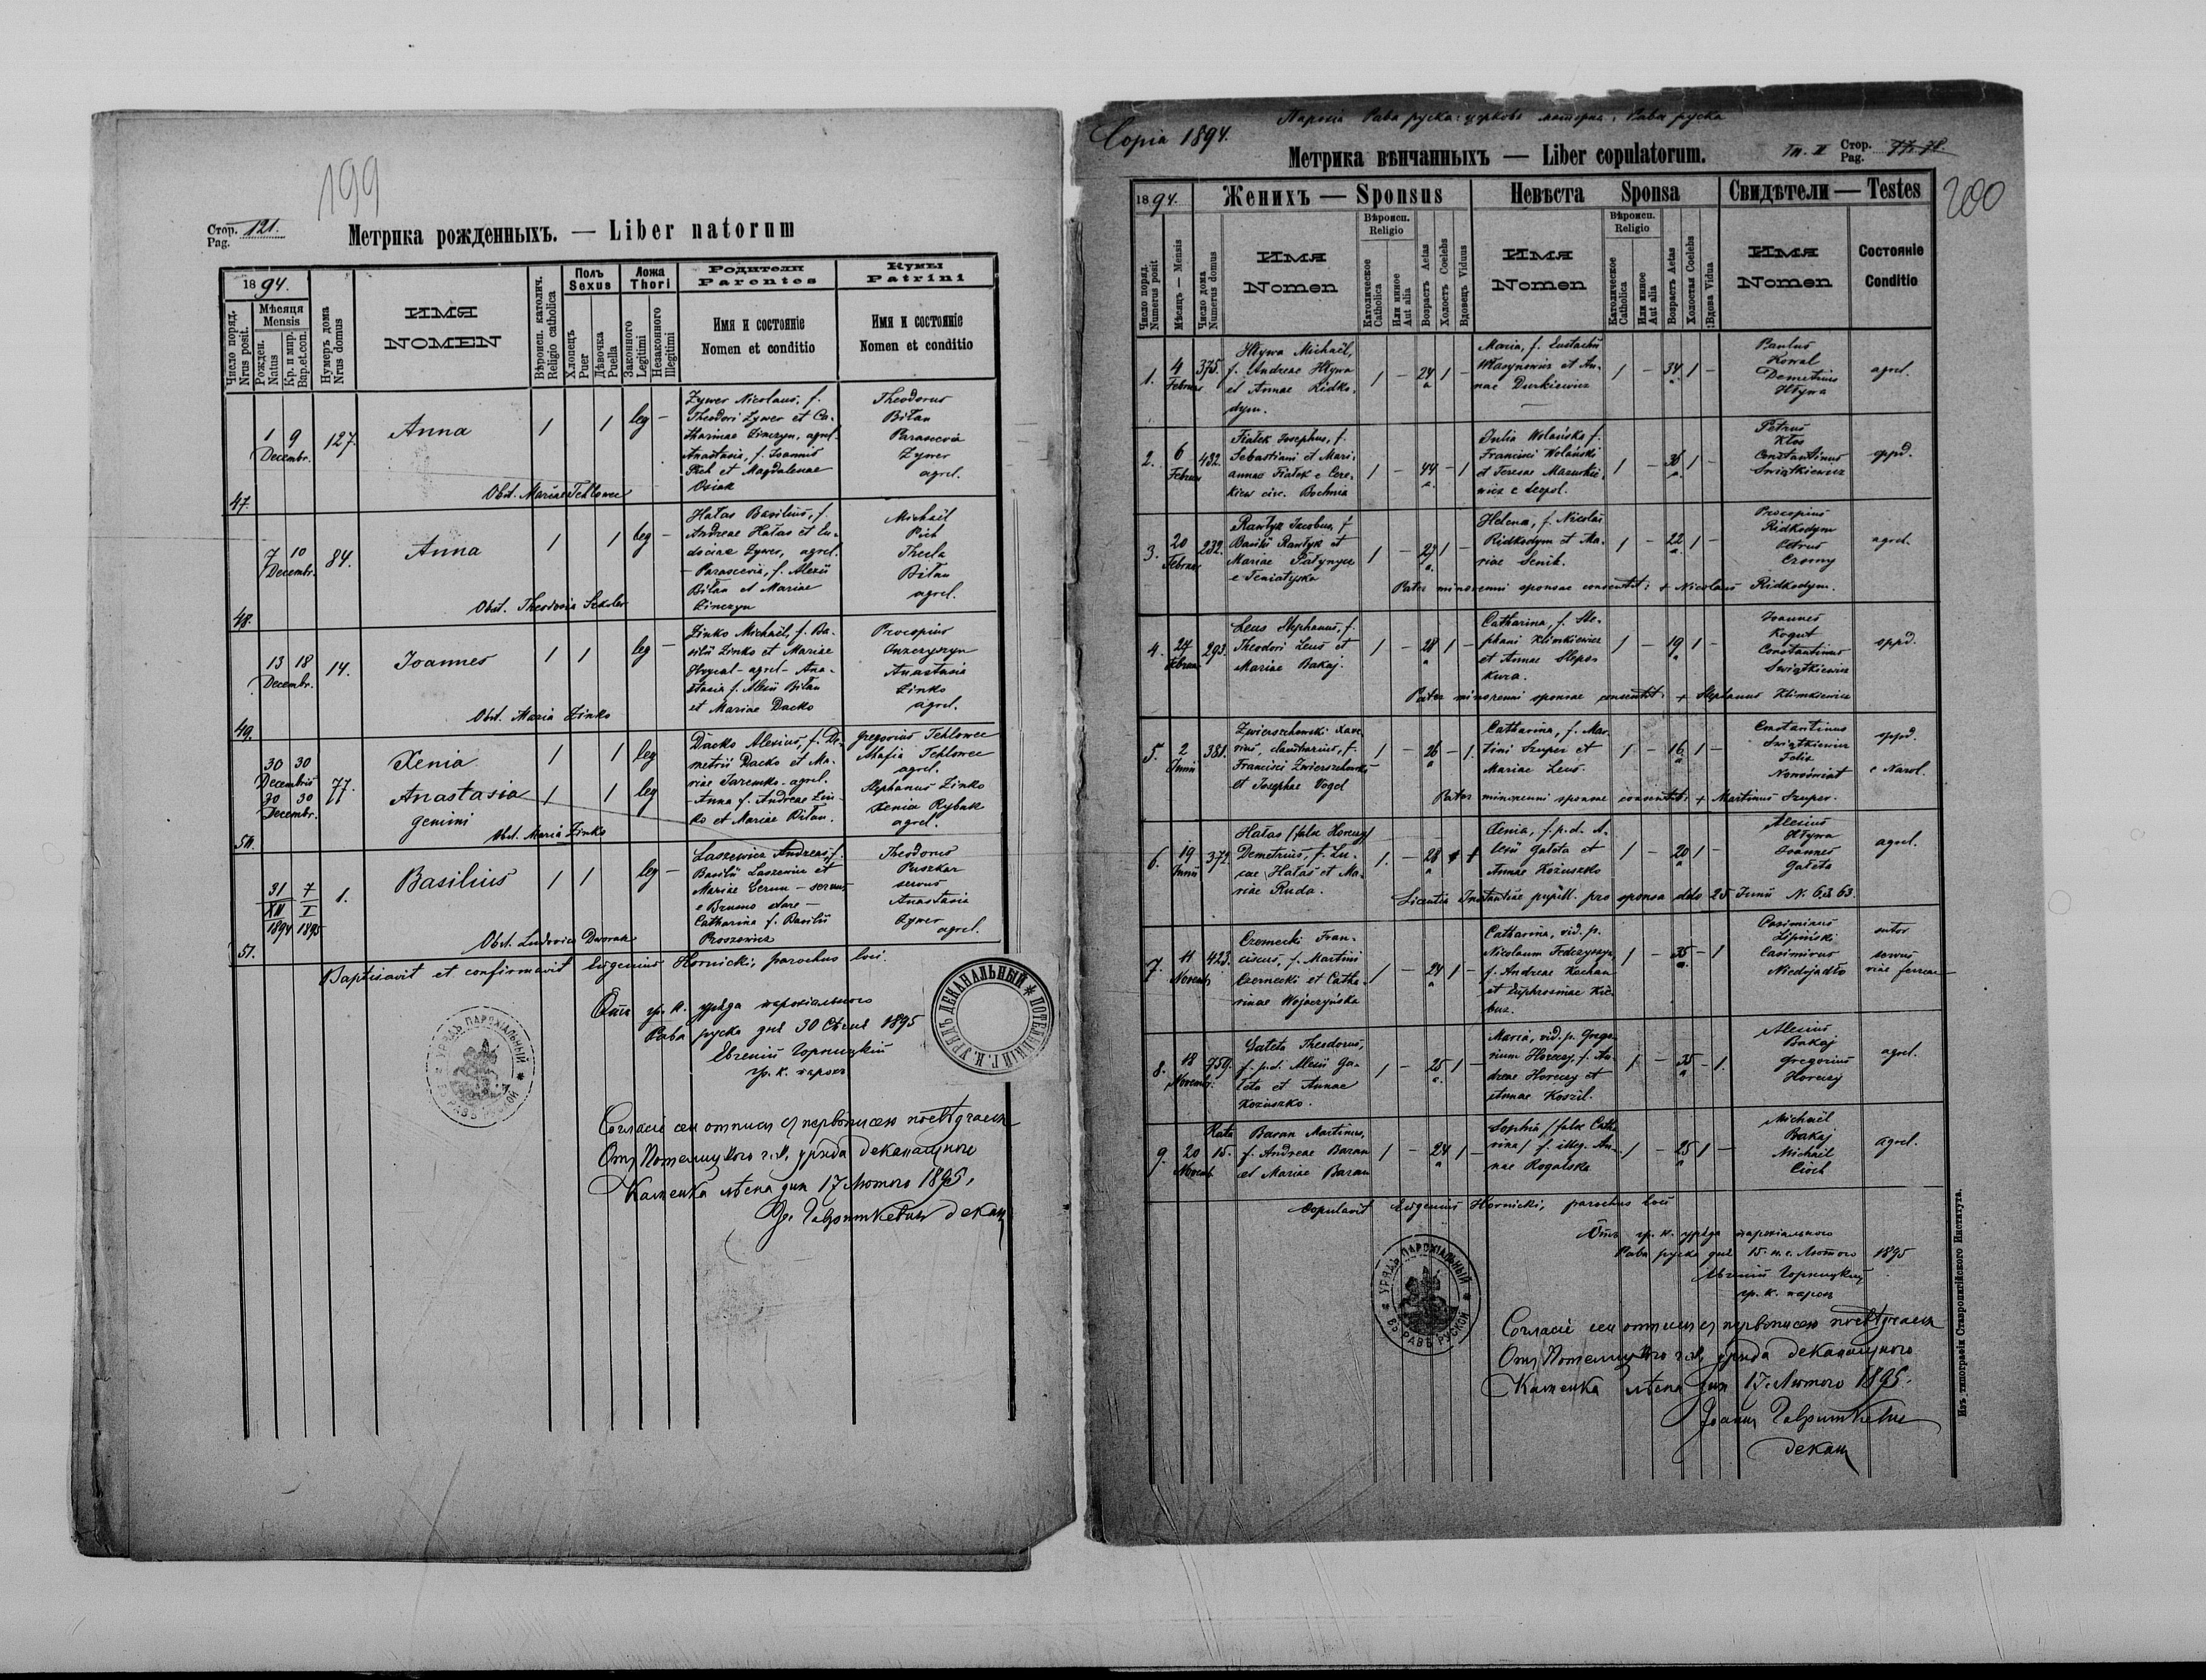 199
Стор. Pag. 121.
Метрика рожденныхъ. — Liber natorum
1894.
Число поряд. Nrus posit.
Мѣсяця Mensis
Рожден. Natus
Кр. и мир. Bap. et con.
Нумеръ дома Nrus domus
ИМЯ NOMEN
Вѣроисп. католич. Religio catholica
Полъ Sexus
Хлопецъ Puer
Дѣвочка Puella
Ложа Thori
Законного Legitimi
Незаконного Illegitimi
Родители Parentes
Имя и состоянiе Nomen et conditio
Кумы Patrini
Имя и состоянiе Nomen et conditio
47.
1 9 Decembr.
127.
Anna
1 1 leg —
Zywer Nicolaus, f.
Theodori Zywer et Ca-
tharinae Zinczyn, agrel.
Anastasia, f. Joannis
Pich et Magdalenae
Osiak
Theodorus
Biłan
Parascevia
Zywer
agrel.
Obst. Maria Tehlowec
48.
7 10 Decembr.
84.
Anna
1 1 leg —
Hałas Basilius, f.
Andreae Hałas et Eu-
dociae Zywer, agrel.
— Parascevia, f. Alexii
Biłan et Mariae
Zinczyn
Michaël
Pich
Thecla
Biłan
agrel.
Obst. Theodosia Szkoler
49.
13 18 Decembr.
14.
Joannes
1 1 leg —
Zinko Michaël, f. Ba-
silii Zinko et Mariae
agrel — Ana-
stasia f. Alexii Biłan
et Mariae Dacko
Procopius
Anastasia
Zinko
agrel.
Obst. Maria Zinko
50.
30 30 Decembris
30 30 Decembr.
77.
Xenia 1 1 leg
Anastasia 1 1 leg
gemini
Dacko Alexius, f. De-
metrii Dacko et Ma-
riae Jaremko — agrel.
— Anna f. Andreae Zin-
ko et Mariae Biłan.
Gregorius Tehlowec
Ahafia Tehlowec
agrel.
Stephanus Zinko
Xenia Rybak
agrel.
Obst. Maria Zinko
51.
31 XII 1894 7 I 1895
1.
Basilius
1 1 leg —
Laszewicz Andreas, f.
Basilii Laszewicz et
Mariae — servus
e Brusno stare —
Catharina f. Basilii
Proszewicz
Theodorus
Puszkar
servus
Anastasia
Zywer
agrel.
Obst. Ludovica Dworak
Baptisavit et confirmavit Eugenius Hornicki, parochus loci.
Отъ гр. к. уряда парохіального
Рава руска дня 30 Сѣчня 1895
Евгеній Горницкій
гр. к. парох
УРЯДЪ ПАРОХІАЛЬНЫЙ * ВЪ РАВѢ РУСКОЙ *
Г. К. УРЯДЪ ДЕКАНАЛЬНЫЙ * ПОТЕЛИЦКІЙ
Согласіе сеи отписи съ первописею посвѣдчаеся
Отъ Потелицкого г.к. уряда деканального
Каменка лѣсна дня 17 Лютого 1895,
Іо. Гавришкевичъ декан
Парохія Рава руска: церковь матерна: Рава руска
Copia 1894.
Метрика вѣнчанныхъ — Liber copulatorum.
Tм. II Стор. Pag. 77. 78
200
1894.
Женихъ — Sponsus
Невѣста Sponsa
Свидѣтели — Testes
Число поряд. Numerus posit
Мѣсяцъ — Mensis
Число дома Numerus domus
ИМЯ Nomen
Вѣроисп. Religio
Католическое Catholica
Или иное Aut alia
Возрастъ Aetas
Холостъ Coelebs
Вдовецъ Viduus
ИМЯ Nomen
Вѣроисп. Religio
Католическое Catholica
Или иное Aut alia
Возрастъ Aetas
Холостая Coelebs
Вдова Vidua
ИМЯ Nomen
Состоянiе Conditio
1. 4 Februar 375.
Hływa Michaël,
f. Andreae Hływa
et Annae Ridko-
dym.
1 — 24 a 1 —
Maria, f. Eustachii
Martynowicz et An-
nae Durkiewicz
1 — 34 a 1 —
Paulus
Kowal
Demetrius
Hływa
agrel.
2. 6 Februar 432.
Fiałek Josephus, f.
Sebastiani et Mari-
annae Fiałek e Cere-
kiew circ. Bochnia
1 — 44 a. — 1
Julia Wolańska f.
Francisci Wolański
et Teresae Mazurkie-
wicz e Leopol.
1 — 36 a. 1 —
Petrus
Kłos
Constantinus
Swiątkiewicz
oppd.
3. 20 Februar 232.
Rawłyk Jacobus, f.
Basilii Rawłyk et
Mariae Pałynycz
e Teniatyska
1 — 23 a. 1 —
Helena, f. Nicolai
Ridkodym et Ma-
riae Senik.
1 — 22 a. 1 —
Procopius
Ridkodym
Petrus
Czorny
agrel.
Pater minorenni sponsae consentit: + Nicolaus Ridkodym.
4. 27 Februar 293.
Leus Stephanus, f.
Theodori Leus et
Mariae Bakaj.
1 — 28 a 1 —
Catharina, f. Ste-
phani Klimkiewicz
et Annae Slepo-
kura.
1 — 19 a 1 —
Joannes
Kogut
Constantinus
Swiątkiewicz
oppd.
Pater minorenni sponsae consentit: + Stephanus Klimkiewicz
5. 2 Junii 381.
Zwierzchowski Xave-
rius, claudiarius, f.
Francisci Zwierzchowski
et Josephae Vogel
1 — 26 a — 1.
Catharina, f. Mar-
tini Szuper et
Mariae Leus.
1 — 16 a 1 —
Constantinus
Swiątkiewicz
Felix
Nowoświat
oppd.
e Narol.
Pater minorenni sponsae consentit: + Martinus Szuper.
6. 19 Junii 372.
Hałas /false Horeczy/
Demetrius, f. Lu-
cae Hałas et Ma-
riae Ruda.
1. — 28 a
Xenia, f. p. d. A-
lexii Gałeta et
Annae Kożuszko
1 — 20 a 1 —
Alexius
Hływa
Joannes
Gałeta
agrel.
Licentia Instantiae pupill. pro sponsa ddo 25 Junii N. 6363.
7. 11 Novemb 423.
Czernecki Fran-
ciscus, f. Martini
Czernecki et Catha-
rinae Wojaczyńska
1 — 24 a 1 —
Catharina, vid. p.
Nicolaum Fedczyszyn
f. Andreae Kochan
et Euphrosinae Kie-
buz.
1 — 35 a. — 1
Casimirus
Lipiński
Casimirus
Niedojadło
sutor
servus
viae ferreae
8. 18 Novembr. 759.
Gałeta Theodorus,
f. p. d. Alexii Ga-
łeta et Annae
Kożuszko.
1 — 25 a. 1 —
Maria, vid. p. Grego-
rium Horeczy, f. An-
dreae Horeczy et
Annae Koszil.
1 — 35 a — 1.
Alexius
Bakaj
Gregorius
Horeczy
agrel.
9. 20 Novemb. Rata 15.
Baran Martinus,
f. Andreae Baran
et Mariae Baran
1 — 24 a 1 —
Sophia /false Catha
rina/ f. illeg. An-
nae Rogalska
1 — 25 a 1 —
Michaël
Bakaj
Michaël
Cioch
agrel.
Copulavit Eugenius Hornicki, parochus loci
Отъ гр. к. уряда парохіального
Рава руска дня 15. н. с. Лютого 1895
Евгеній Горницкій
гр. к. парох
УРЯДЪ ПАРОХІАЛЬНЫЙ * ВЪ РАВѢ РУСКОЙ *
Согласіе сеи отписи съ первописею посвѣдчаеся
Отъ Потелицкого г.к. уряда деканального
Каменка лѣсна дня 17 Лютого 1895.
Іоанъ Гавришкевич
декан
Изъ типографіи Ставропигійского Института.